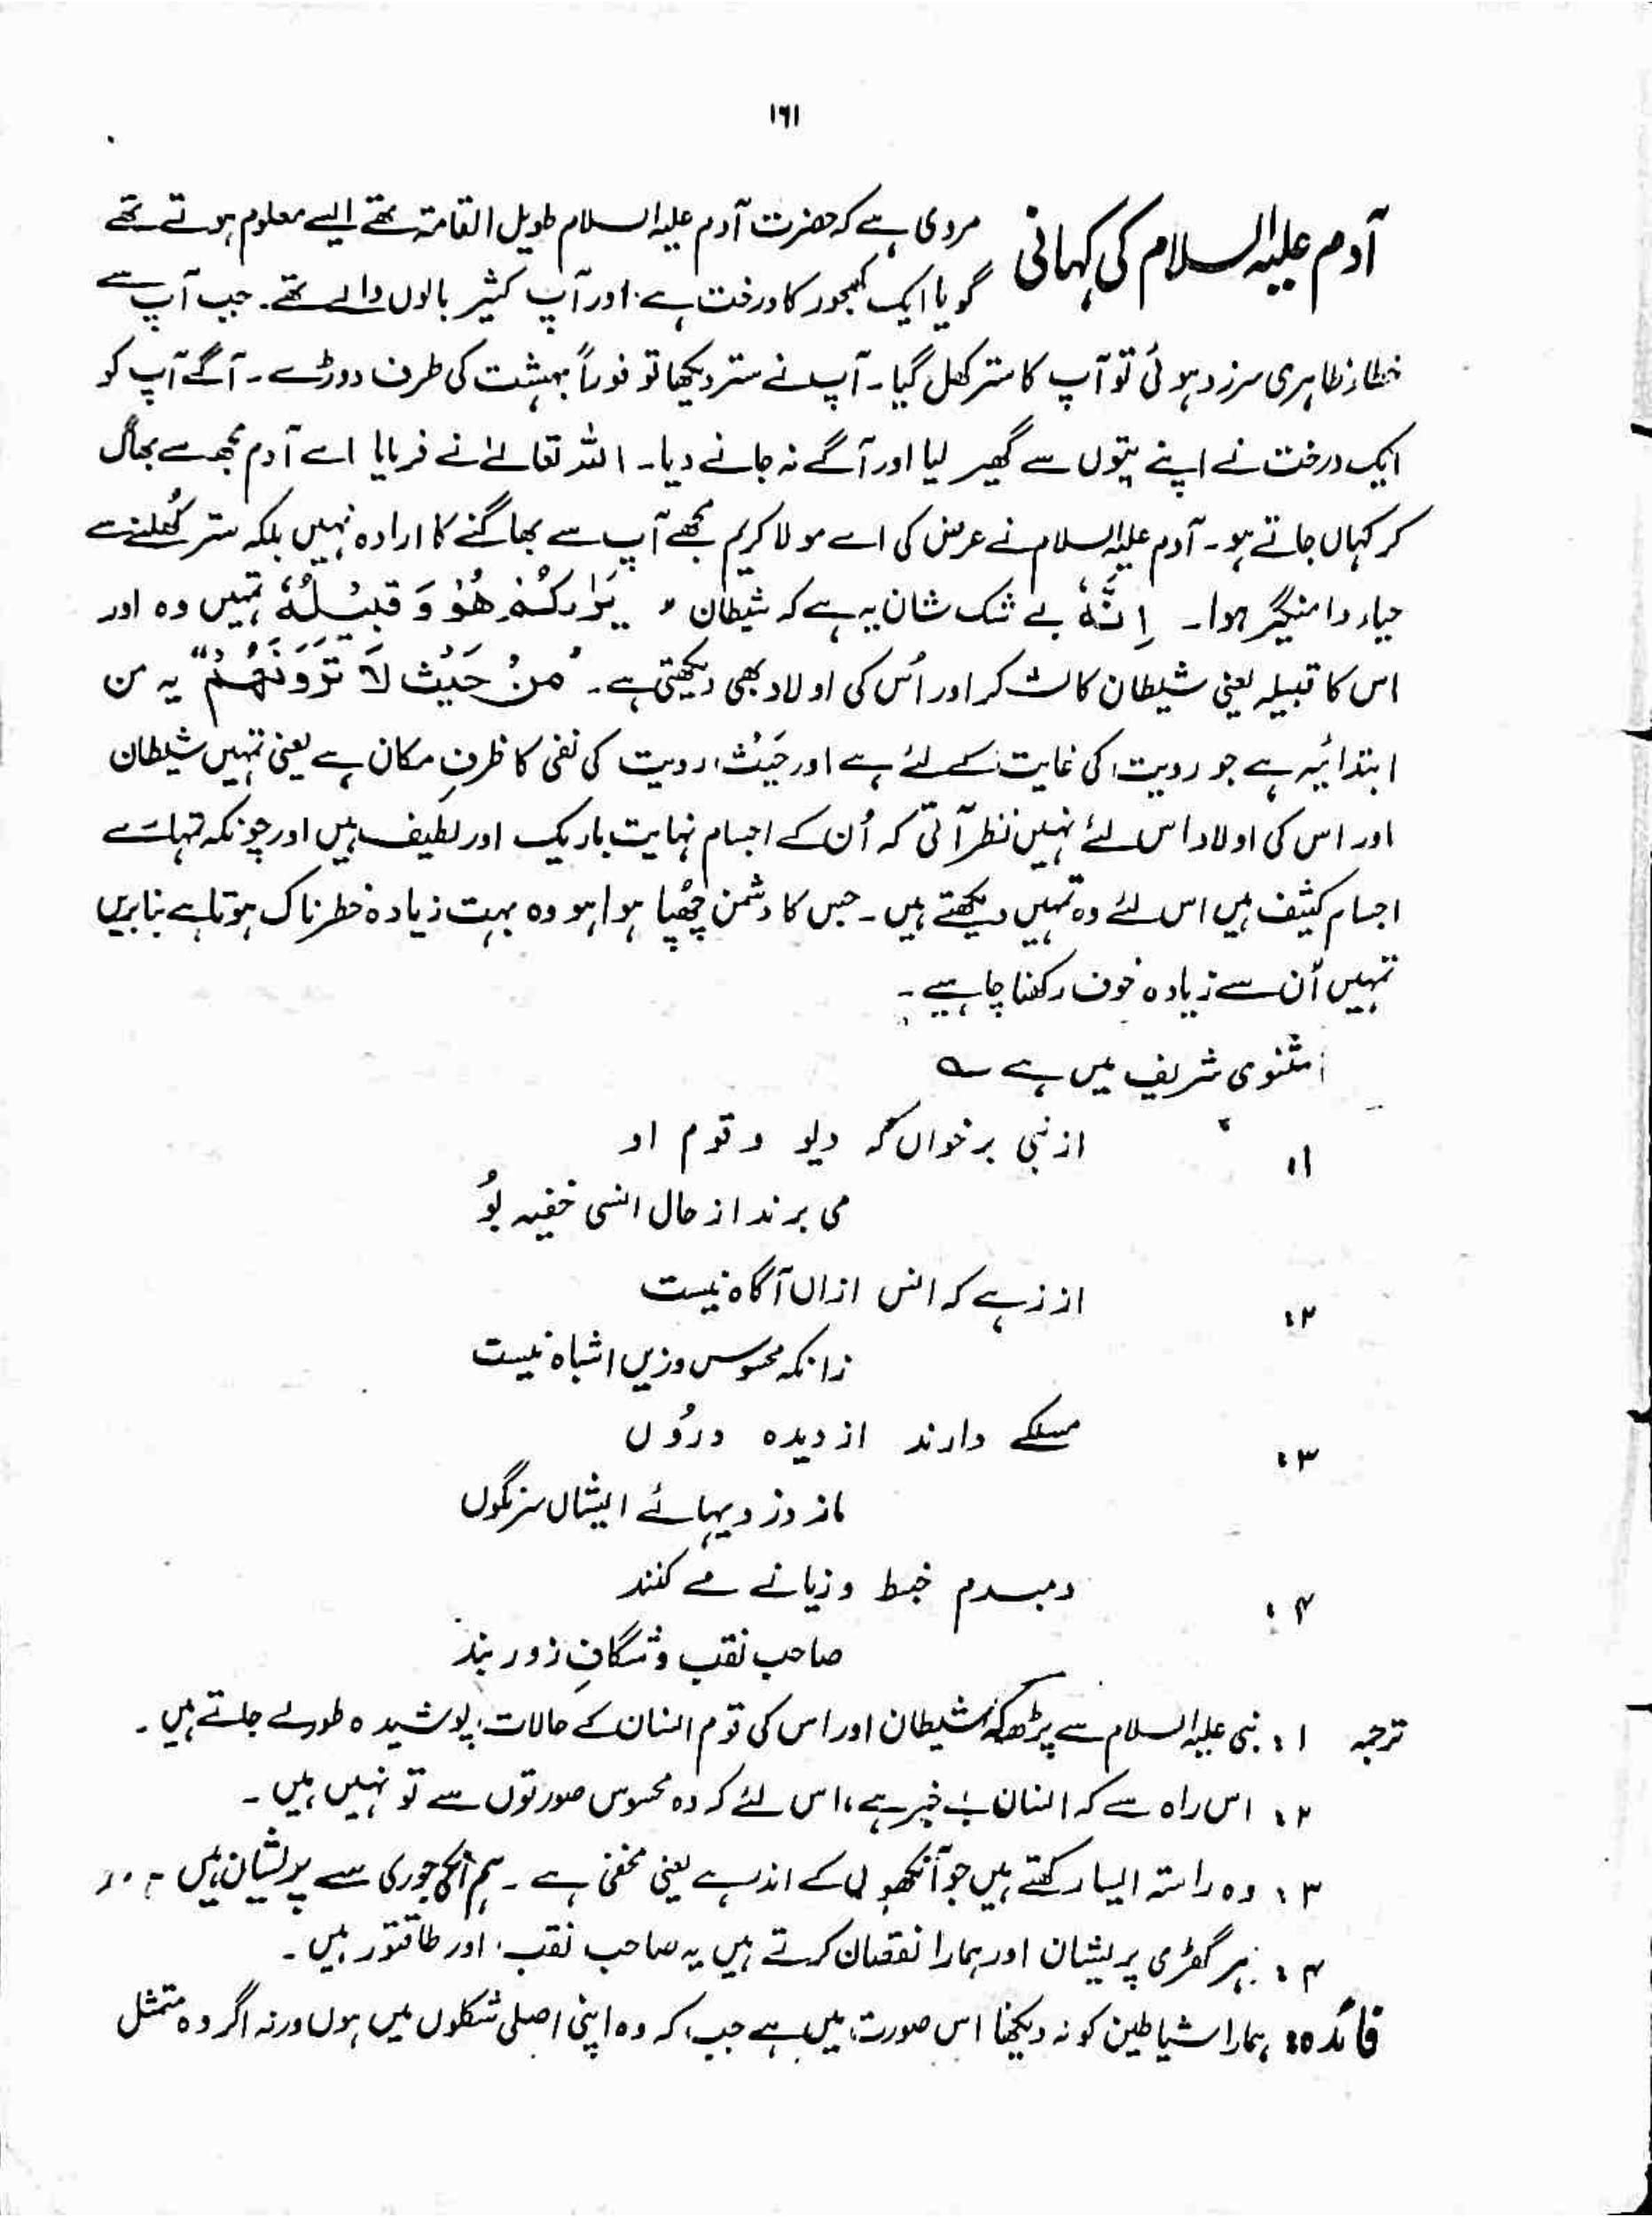 ۱۶۱
آدم علیہ السلام کی کہانی
مروی ہے کہ حضرت آدم علیہ السلام طویل القامۃ تھے ایسے معلوم ہوتے تھے
گویا ایک کھجور کا درخت ہے. اور آپ کثیر بالوں والے تھے. جب آپ سے
خطاءِ ظاہری سرزد ہوئی تو آپ کا ستر کھل گیا۔ آپ نے ستر دیکھا تو فوراً بہشت کی طرف دوڑے۔ آگے آپ کو
ایک درخت نے اپنے پتوں سے گھیر لیا اور آگے نہ جانے دیا۔ اللہ تعالےٰ نے فرمایا اے آدم مجھ سے بھاگ
کر کہاں جاتے ہو۔ آدم علیہ السلام نے عرض کی اے مولا کریم مجھے آپ سے بھاگنے کا ارادہ نہیں بلکہ ستر کُھلنے سے
حیاء دامنگیر ہوا۔ اِنَّهٗ بے شک شان یہ ہے کہ شیطان " یَرٰىکُمْ هُوَ وَ قَبِیْلُهٗ تمہیں وہ اور
اس کا قبیلہ یعنی شیطان کا لشکر اور اُس کی اولاد بھی دیکھتی ہے۔ "مِنْ حَیْثُ لَا تَرَوْنَهُمْ" یہ من
ابتدائیہ ہے جو رویت کی غایت کے لئے ہے اور حَیْثُ، رویت کی نفی کا ظرفِ مکان ہے یعنی تمہیں شیطان
اور اس کی اولاد اس لئے نہیں نظر آتی کہ اُن کے اجسام نہایت باریک اور لطیف ہیں اور چونکہ تمہارے
اجسام کثیف ہیں اس لئے وہ تمہیں دیکھتے ہیں۔ جس کا دشمن چُھپا ہوا ہو وہ بہت زیادہ خطرناک ہوتا ہے بنا بریں
تمہیں اُن سے زیادہ خوف رکھنا چاہیے۔
مثنوی شریف میں ہے ؎
۱: از نبی برخواں کہ دیو و قوم او
می برند از حال انسی خفیہ بُو
۲: از زہے کہ انس ازاں آگاہ نیست
زانکہ محسوس وزیں اشباہ نیست
۳: مسلکے دارند از دیدہ درُوں
ماز دزدیہائے ایشاں سرنگوں
۴: دمبدم خبط و زیانے مے کنند
صاحب نقب و شگافِ زورمند
ترجمہ ۱: نبی علیہ السلام سے پڑھ کہ شیطان اور اس کی قوم انسان کے حالات پوشیدہ طور لے جاتے ہیں۔
۲: اس راہ سے کہ انسان بے خبر ہے، اس لئے کہ وہ محسوس صورتوں سے تو نہیں ہیں۔
۳: وہ راستہ ایسا رکھتے ہیں جو آنکھوں کے اندر ہے یعنی مخفی ہے۔ ہم انکی چوری سے پریشان ہیں
۴: ہر گھڑی پریشان اور ہمارا نقصان کرتے ہیں یہ صاحب نقب، اور طاقتور ہیں۔
فائدہ: ہمارا شیاطین کو نہ دیکھنا اس صورت میں ہے جب کہ وہ اپنی اصلی شکلوں میں ہوں ورنہ اگر وہ متمثل